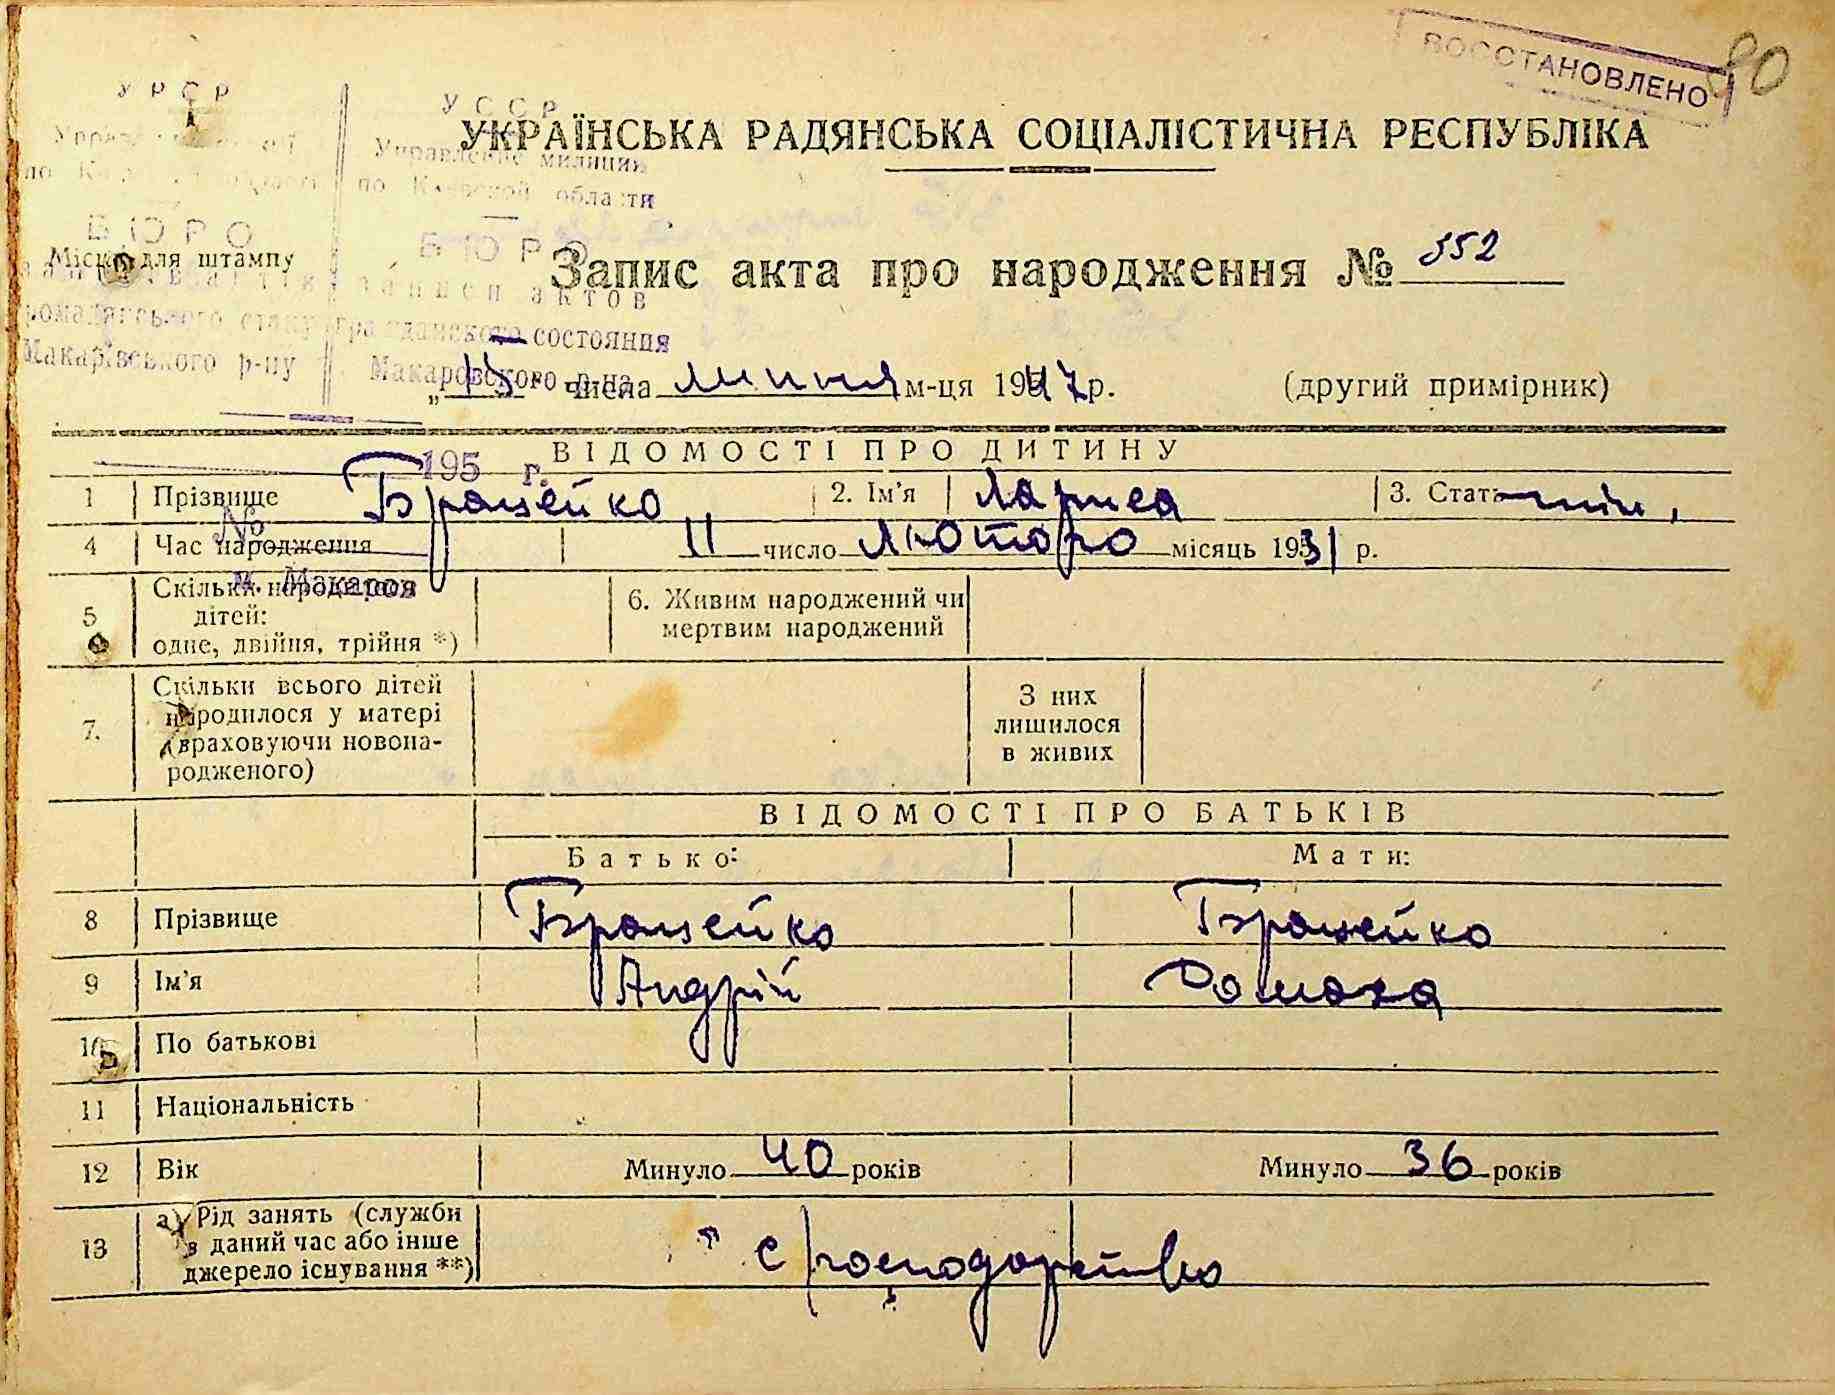 ВОССТАНОВЛЕНО
90
УРСР
УССР
Управление милиции
по Киевской области
БЮРО
БЮРО
УКРАЇНСЬКА РАДЯНСЬКА СОЦІАЛІСТИЧНА РЕСПУБЛІКА
Місце для штампу
Запис акта про народження № 352
записей актов
громадянського стану гражданского состояния
Макарівського р-ну Макаровского р-на
„15" числа липня м-ця 1947 р. (другий примірник)
ВІДОМОСТІ ПРО ДИТИНУ
195 г.
1 Прізвище Брацейко 2. Ім'я Лариса 3. Стать жін.
№
4 Час народження 11 число лютого місяць 1931 р.
м. Макаров
5 Скільки народилося дітей: одне, двійня, трійня *) 6. Живим народжений чи мертвим народжений
7. Скільки всього дітей народилося у матері (враховуючи новонародженого) З них лишилося в живих
ВІДОМОСТІ ПРО БАТЬКІВ
Батько: Мати:
8 Прізвище Брацейко Брацейко
9 Ім'я Андрій Домаха
10 По батькові
11 Національність
12 Вік Минуло 40 років Минуло 36 років
13 а) Рід занять (служби в даний час або інше джерело існування **) с/господарство